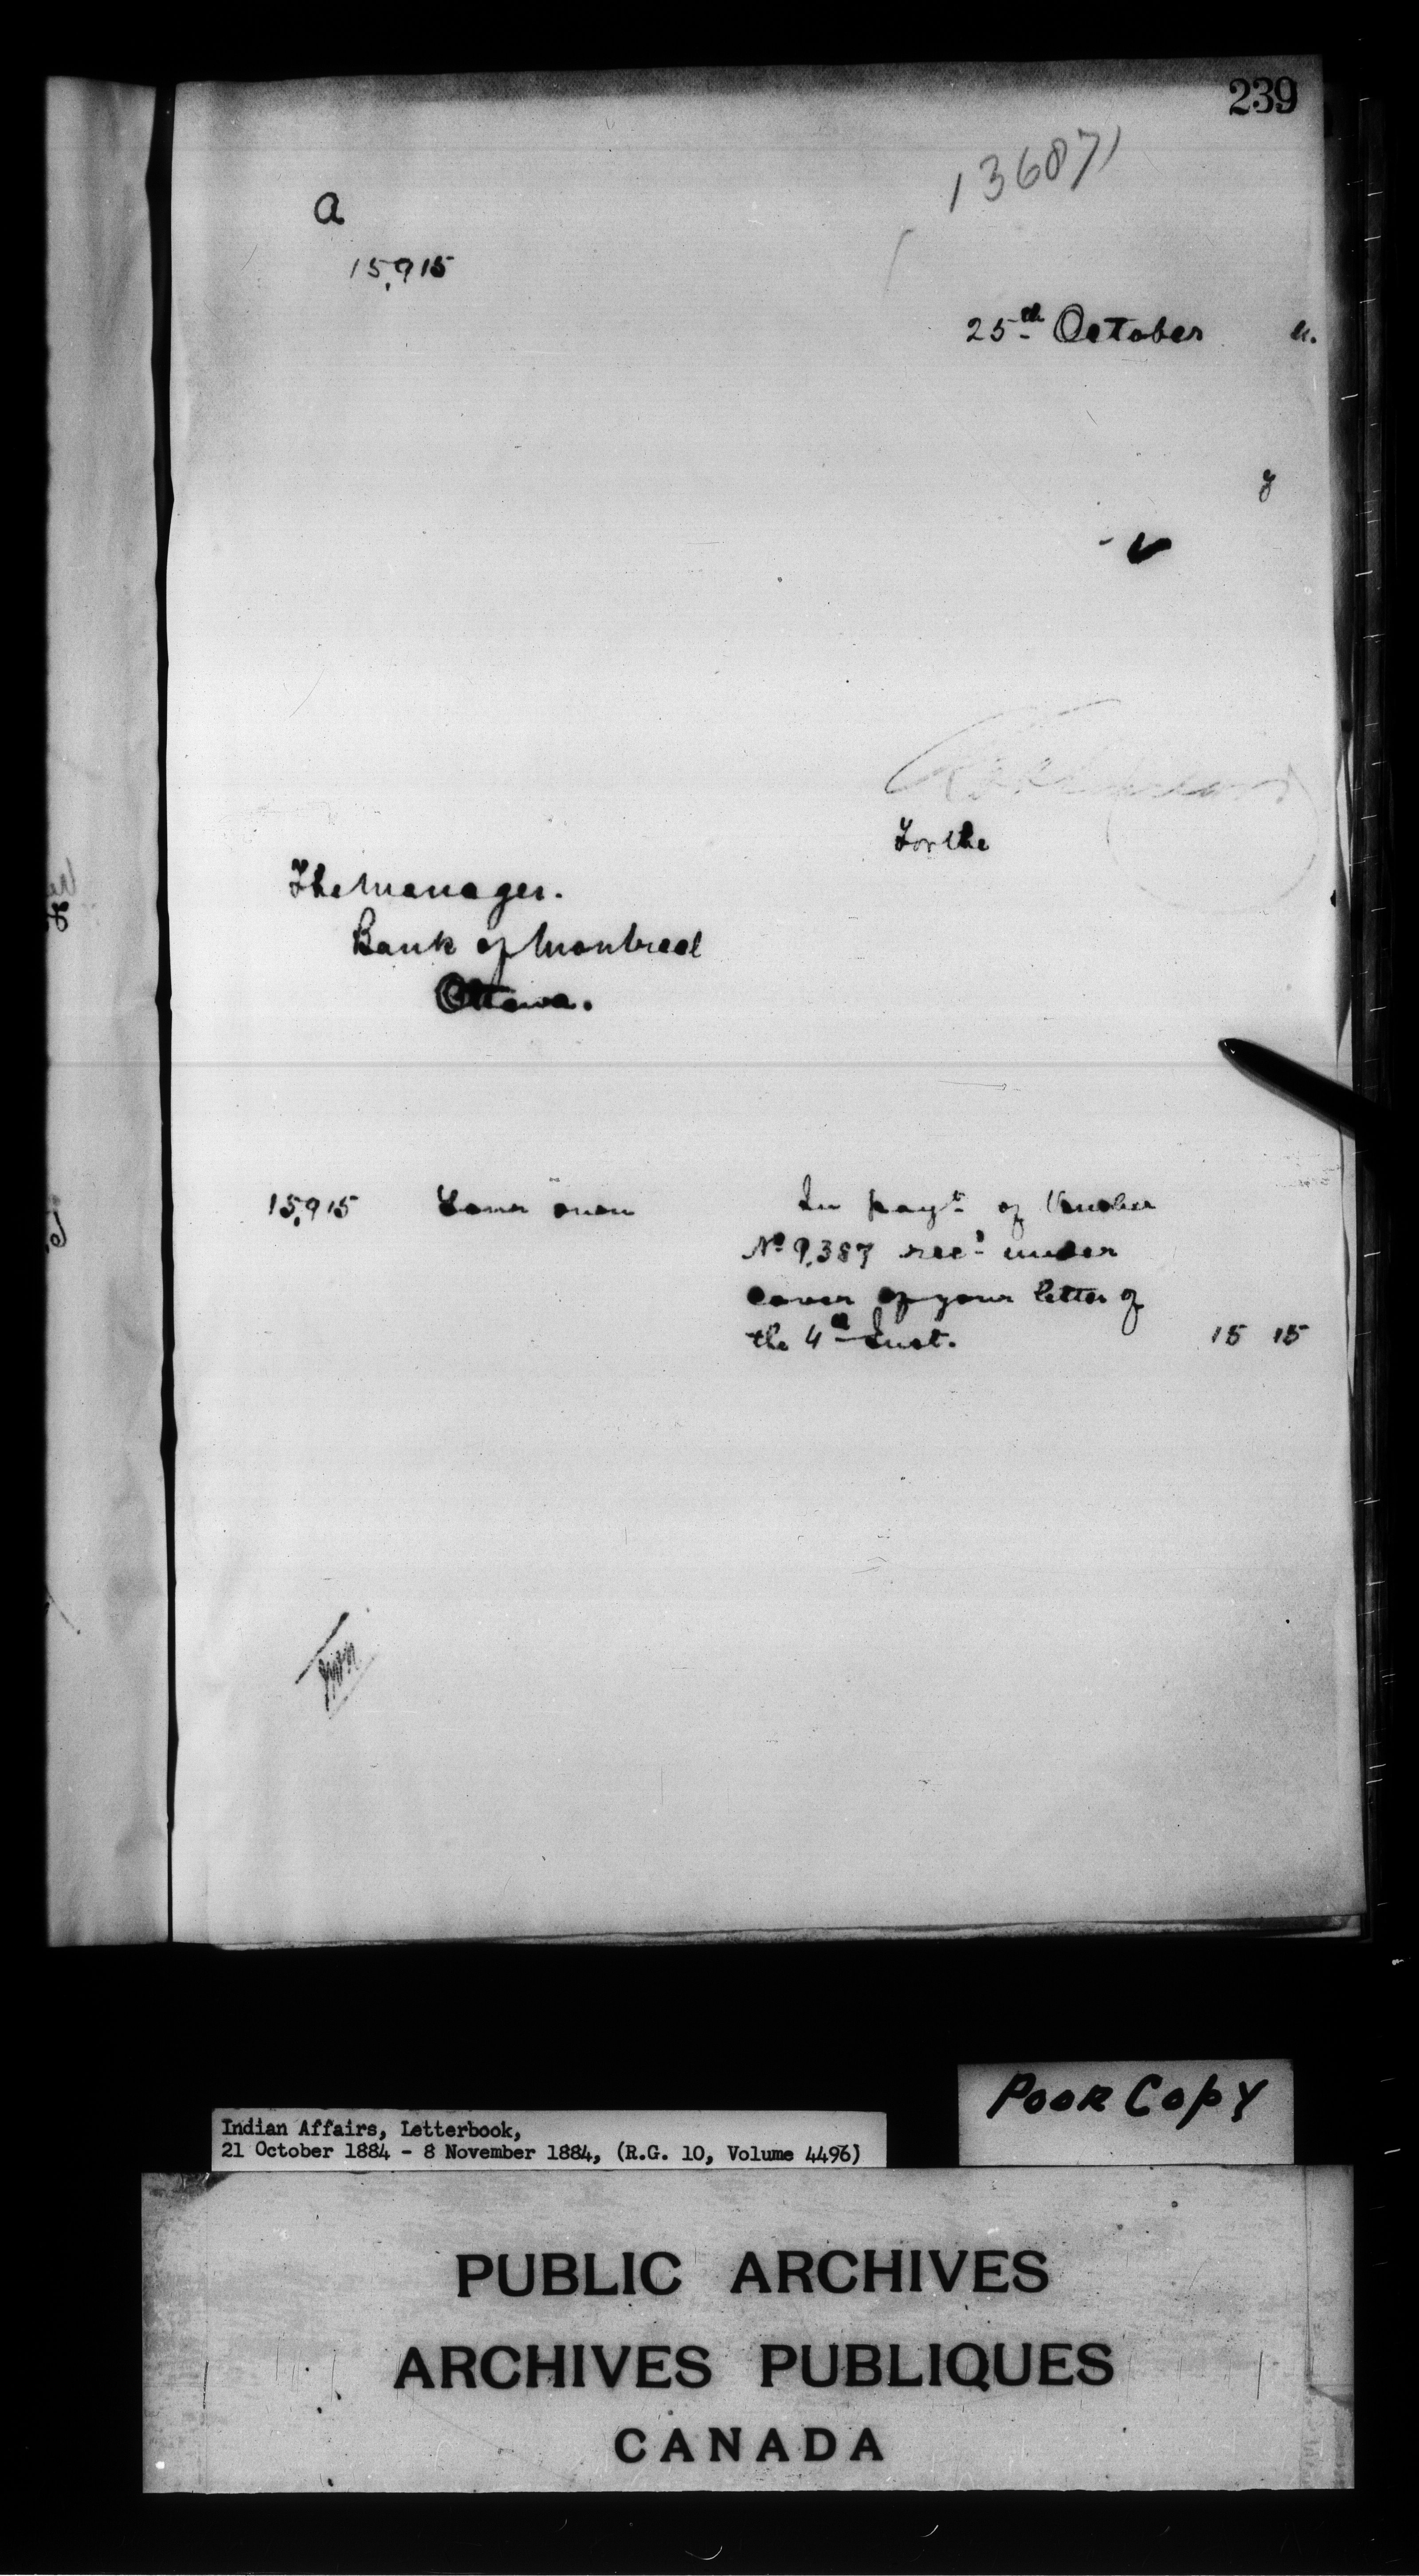 239
13687
a
15,915
25th October 4.
y
For the
The Manager.
Bank of Montreal
Ottawa.
15,915 In payt of Voucher
No 9,387 recd under
cover of your letter of
the 4th Inst. 15 15
Poor Copy
Indian Affairs, Letterbook,
21 October 1884 - 8 November 1884, (R.G. 10, Volume 4496)
PUBLIC ARCHIVES
ARCHIVES PUBLIQUES
CANADA